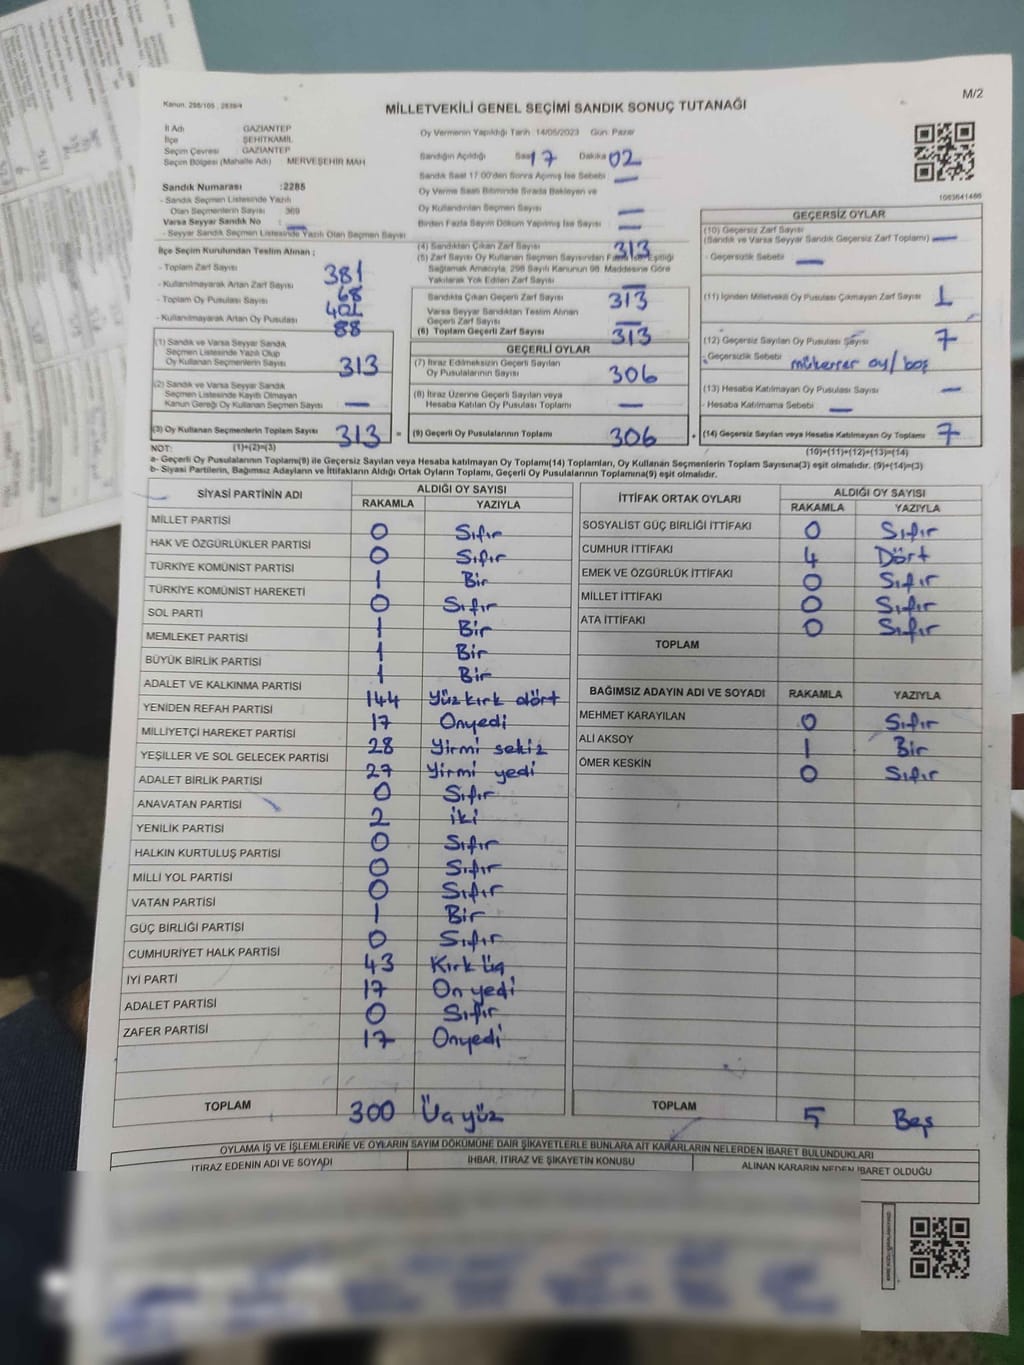 M/2
Kanun. 298/105 , 2839/4
MİLLETVEKİLİ GENEL SEÇİMİ SANDIK SONUÇ TUTANAĞI
İl Adı GAZİANTEP
İlçe ŞEHİTKAMİL
Seçim Çevresi GAZİANTEP
Seçim Bölgesi (Mahalle Adı) MERVEŞEHİR MAH
Sandık Numarası :2285
- Sandık Seçmen Listesinde Yazılı
Olan Seçmenlerin Sayısı 369
Varsa Seyyar Sandık No : —
- Seyyar Sandık Seçmen Listesinde Yazılı Olan Seçmen Sayısı
Oy Vermenin Yapıldığı Tarih: 14/05/2023 Gün: Pazar
Sandığın Açıldığı Saat 17 Dakika 02
Sandık Saat 17:00'den Sonra Açılmış İse Sebebi : —
Oy Verme Saati Bitiminde Sırada Bekleyen ve
Oy Kullandırılan Seçmen Sayısı —
Birden Fazla Sayım Döküm Yapılmış İse Sayısı —
1063641466
İlçe Seçim Kurulundan Teslim Alınan ;
- Toplam Zarf Sayısı 381
- Kullanılmayarak Artan Zarf Sayısı 68
- Toplam Oy Pusulası Sayısı
- Kullanılmayarak Artan Oy Pusulası 88
(1) Sandık ve Varsa Seyyar Sandık
Seçmen Listesinde Yazılı Olup
Oy Kullanan Seçmenlerin Sayısı 313
(2) Sandık ve Varsa Seyyar Sandık
Seçmen Listesinde Kayıtlı Olmayan
Kanun Gereği Oy Kullanan Seçmen Sayısı —
(3) Oy Kullanan Seçmenlerin Toplam Sayısı 313 =
(1)+(2)=(3)
(4) Sandıktan Çıkan Zarf Sayısı 313
(5) Zarf Sayısı Oy Kullanan Seçmen Sayısından Fazla İse, Eşitliği
Sağlamak Amacıyla, 298 Sayılı Kanunun 98. Maddesine Göre
Yakılarak Yok Edilen Zarf Sayısı —
Sandıkta Çıkan Geçerli Zarf Sayısı 313
Varsa Seyyar Sandıktan Teslim Alınan
Geçerli Zarf Sayısı —
(6) Toplam Geçerli Zarf Sayısı 313
GEÇERLİ OYLAR
(7) İtiraz Edilmeksizin Geçerli Sayılan
Oy Pusulalarının Sayısı 306
(8) İtiraz Üzerine Geçerli Sayılan veya
Hesaba Katılan Oy Pusulası Toplamı —
(9) Geçerli Oy Pusulalarının Toplamı 306 +
GEÇERSİZ OYLAR
(10) Geçersiz Zarf Sayısı
(Sandık ve Varsa Seyyar Sandık Geçersiz Zarf Toplamı) —
- Geçersizlik Sebebi : —
(11) İçinden Milletvekili Oy Pusulası Çıkmayan Zarf Sayısı 1
(12) Geçersiz Sayılan Oy Pusulası Sayısı 7
- Geçersizlik Sebebi : mükerrer oy/boş
(13) Hesaba Katılmayan Oy Pusulası Sayısı —
- Hesaba Katılmama Sebebi : —
(14) Geçersiz Sayılan veya Hesaba Katılmayan Oy Toplamı 7
(10)+(11)+(12)+(13)=(14)
NOT:
a- Geçerli Oy Pusulasıları(9) ile Geçersiz Sayılan veya Hesaba katılmayan Oy Toplamı(14) Toplamları, Oy Kullanan Seçmenlerin Toplam Sayısına(3) eşit olmalıdır. (9)+(14)=(3)
b- Siyasi Partilerin, Bağımsız Adayların ve İttifakların Aldığı Ortak Oyların Toplamı, Geçerli Oy Pusulalarının Toplamına(9) eşit olmalıdır.
SİYASİ PARTİNİN ADI ALDIĞI OY SAYISI
RAKAMLA YAZIYLA
MİLLET PARTİSİ 0 Sıfır
HAK VE ÖZGÜRLÜKLER PARTİSİ 0 Sıfır
TÜRKİYE KOMÜNİST PARTİSİ 1 Bir
TÜRKİYE KOMÜNİST HAREKETİ 0 Sıfır
SOL PARTİ 1 Bir
MEMLEKET PARTİSİ 1 Bir
BÜYÜK BİRLİK PARTİSİ 1 Bir
ADALET VE KALKINMA PARTİSİ 144 Yüzkırk dört
YENİDEN REFAH PARTİSİ 17 Onyedi
MİLLİYETÇİ HAREKET PARTİSİ 28 Yirmi sekiz
YEŞİLLER VE SOL GELECEK PARTİSİ 27 Yirmi yedi
ADALET BİRLİK PARTİSİ 0 Sıfır
ANAVATAN PARTİSİ 2 iki
YENİLİK PARTİSİ 0 Sıfır
HALKIN KURTULUŞ PARTİSİ 0 Sıfır
MİLLİ YOL PARTİSİ 0 Sıfır
VATAN PARTİSİ 1 Bir
GÜÇ BİRLİĞİ PARTİSİ 0 Sıfır
CUMHURİYET HALK PARTİSİ 43 Kırk üç
İYİ PARTİ 17 On yedi
ADALET PARTİSİ 0 Sıfır
ZAFER PARTİSİ 17 Onyedi
TOPLAM 300 Üçyüz
İTTİFAK ORTAK OYLARI ALDIĞI OY SAYISI
RAKAMLA YAZIYLA
SOSYALİST GÜÇ BİRLİĞİ İTTİFAKI 0 Sıfır
CUMHUR İTTİFAKI 4 Dört
EMEK VE ÖZGÜRLÜK İTTİFAKI 0 Sıfır
MİLLET İTTİFAKI 0 Sıfır
ATA İTTİFAKI 0 Sıfır
TOPLAM
BAĞIMSIZ ADAYIN ADI VE SOYADI RAKAMLA YAZIYLA
MEHMET KARAYILAN 0 Sıfır
ALİ AKSOY 1 Bir
ÖMER KESKİN 0 Sıfır
TOPLAM 5 Beş
OYLAMA İŞ VE İŞLEMLERİNE VE OYLARIN SAYIM DÖKÜMÜNE DAİR ŞİKAYETLERLE BUNLARA AİT KARARLARIN NELERDEN İBARET BULUNDUKLARI
İTİRAZ EDENİN ADI VE SOYADI İHBAR, İTİRAZ VE ŞİKAYETİN KONUSU ALINAN KARARIN NEDEN İBARET OLDUĞU